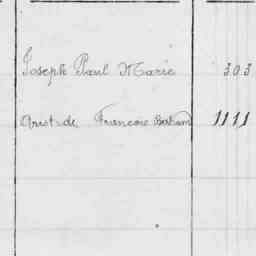 Joseph Paul Marie 303
Arist-de Francois Bertrand 1111